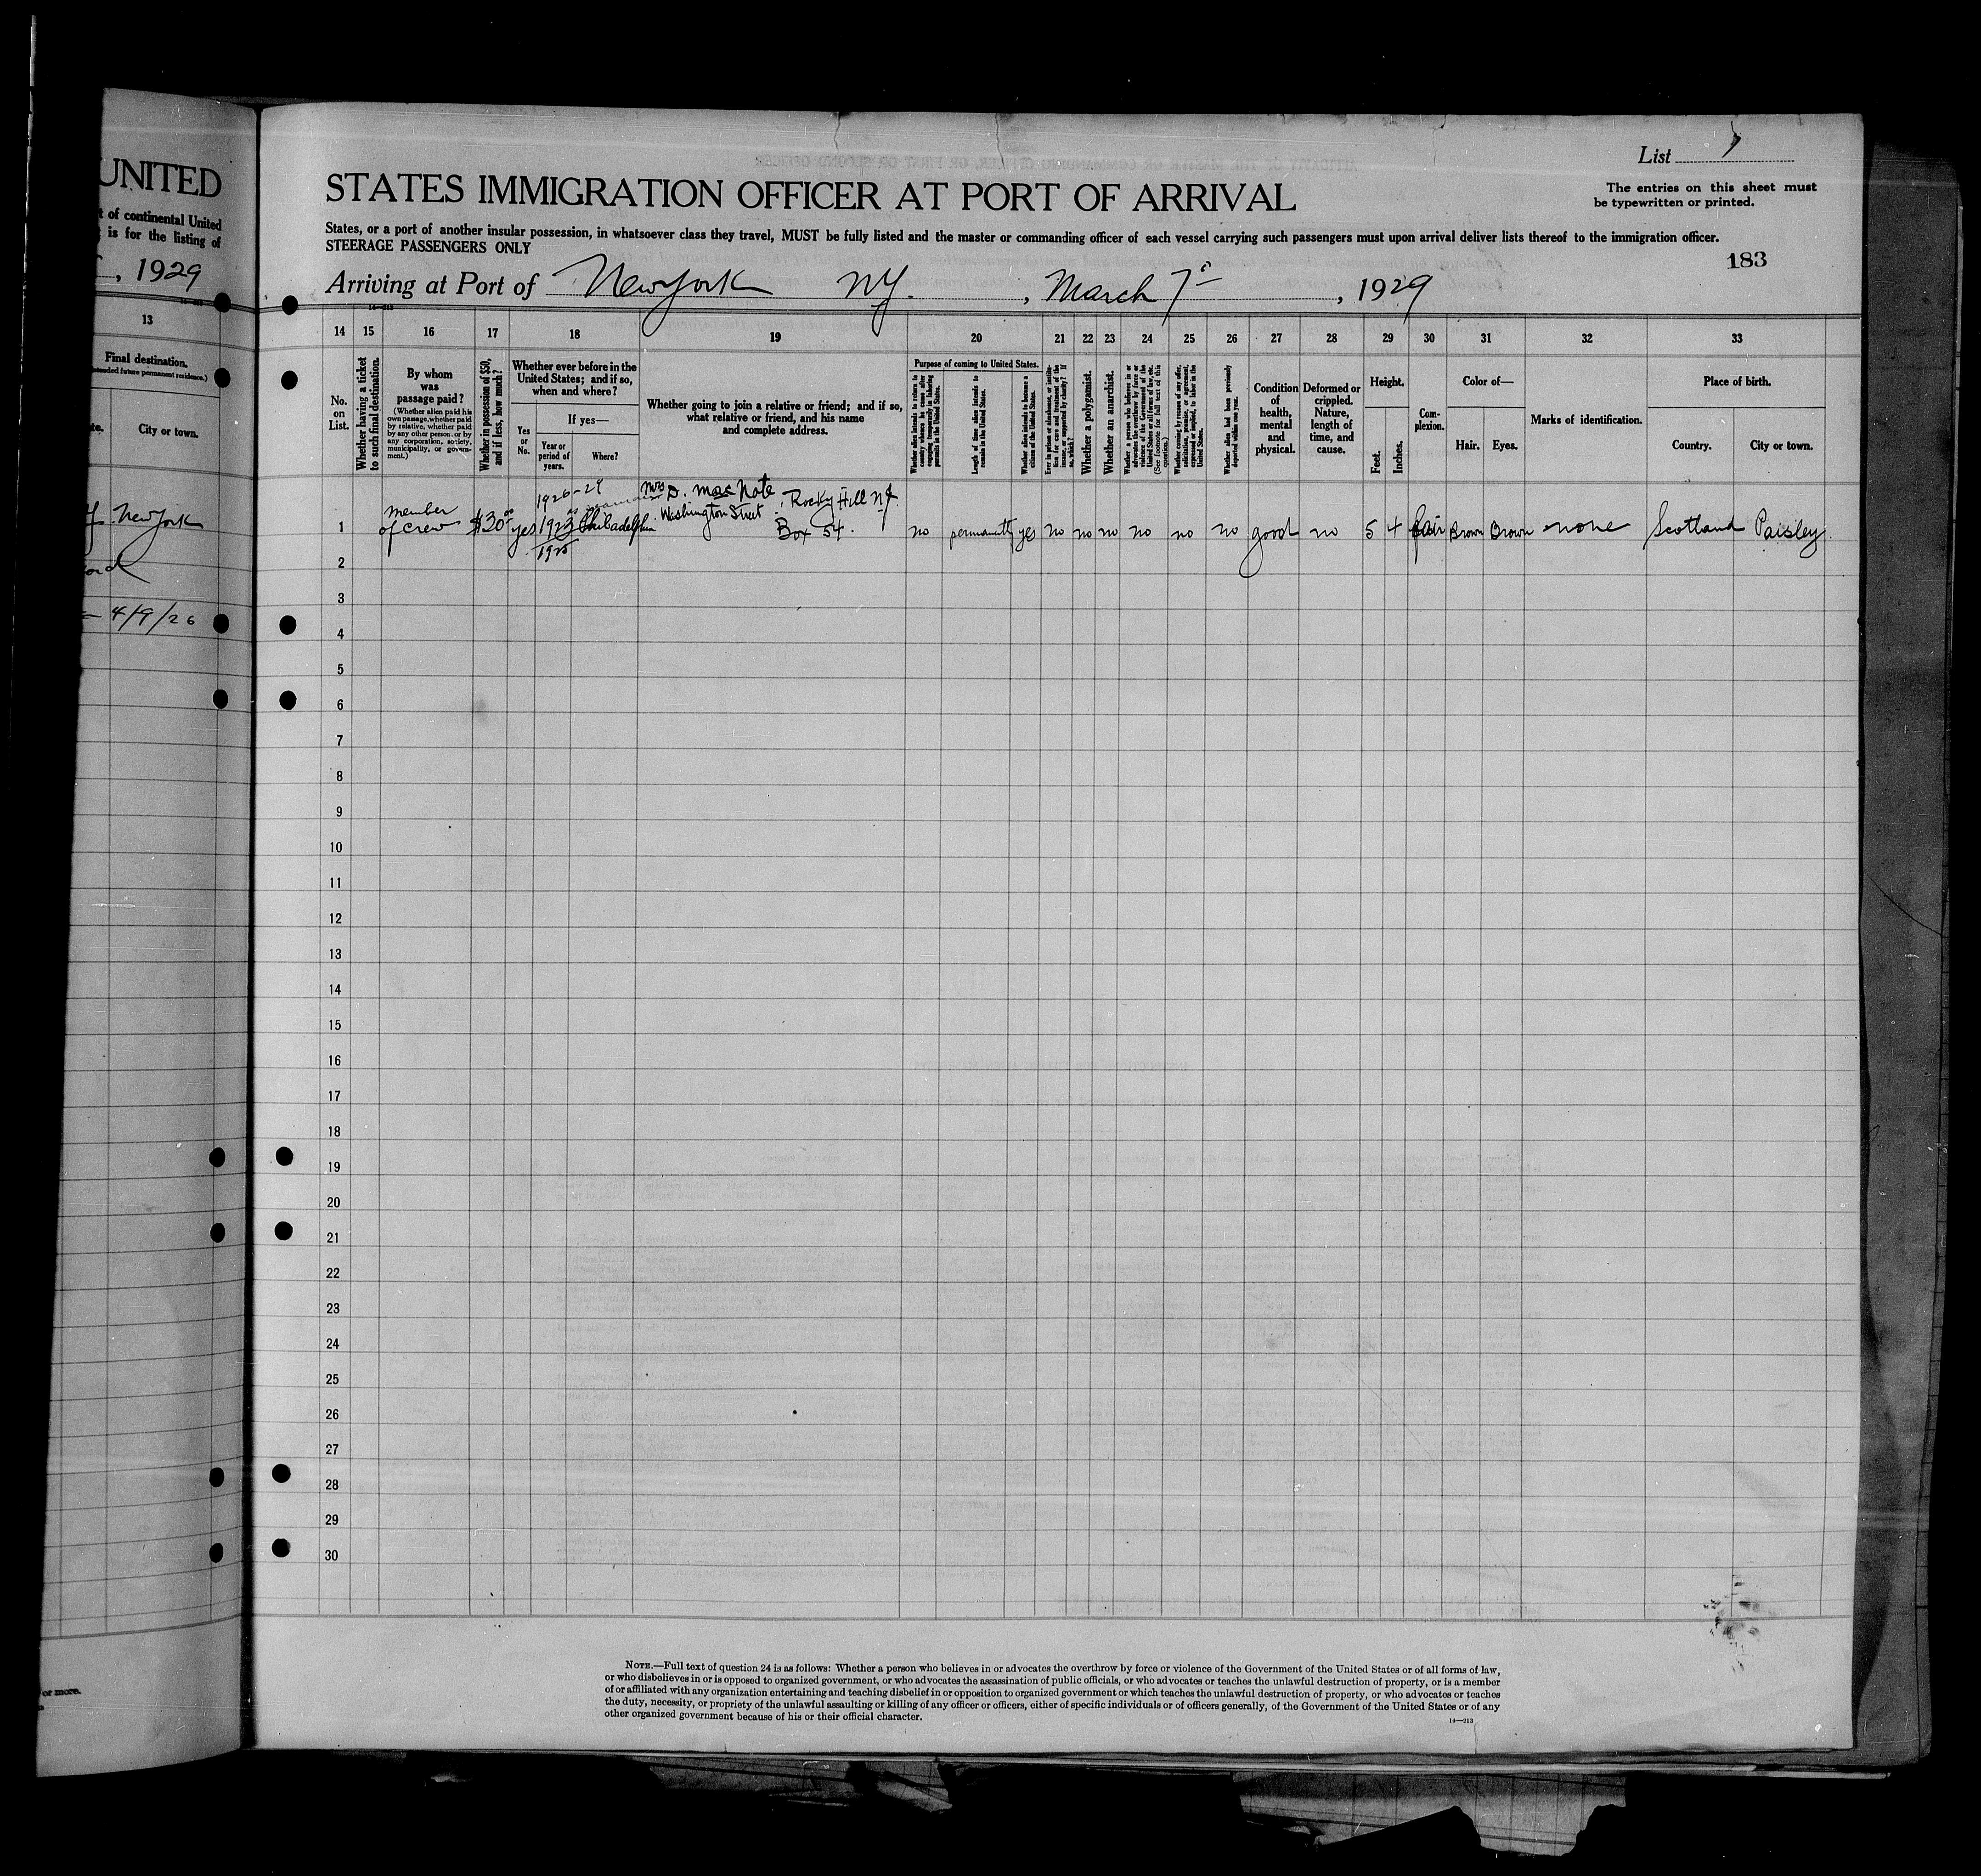 UNITED
t of continental United
is for the listing of
, 1929
13
Final destination.
intended future permanent residence.)
te.
City or town.
New York
4/9/26
or more.
List
The entries on this sheet must
be typewritten or printed.
STATES IMMIGRATION OFFICER AT PORT OF ARRIVAL
States, or a port of another insular possession, in whatsoever class they travel, MUST be fully listed and the master or commanding officer of each vessel carrying such passengers must upon arrival deliver lists thereof to the immigration officer.
STEERAGE PASSENGERS ONLY
183
Arriving at Port of New York NY. , March 7 , 1929
14 15 16 17 18 19 20 21 22 23 24 25 26 27 28 29 30 31 32 33
No. on List.
Whether having a ticket to such final destination.
By whom was passage paid?
(Whether alien paid his own passage, whether paid by relative, whether paid by any other person, or by any corporation, society, municipality, or government.)
Whether in possession of $50, and if less, how much?
Whether ever before in the United States; and if so, when and where?
Yes or No.
If yes—
Year or period of years.
Where?
Whether going to join a relative or friend; and if so, what relative or friend, and his name and complete address.
Purpose of coming to United States.
Whether alien intends to return to country whence he came after engaging temporarily in laboring pursuits in the United States.
Length of time alien intends to remain in the United States.
Whether alien intends to become a citizen of the United States.
Ever in prison or almshouse, or institution for care and treatment of the insane, or supported by charity? If so, which?
Whether a polygamist.
Whether an anarchist.
Whether a person who believes in or advocates the overthrow by force or violence of the Government of the United States or all forms of law, etc. (See footnote for full text of this question.)
Whether coming by reason of any offer, solicitation, promise, or agreement, express or implied, to labor in the United States.
Whether alien had been previously deported within one year.
Condition of health, mental and physical.
Deformed or crippled. Nature, length of time, and cause.
Height.
Feet.
Inches.
Complexion.
Color of—
Hair.
Eyes.
Marks of identification.
Place of birth.
Country.
City or town.
1926-29
Mrs D. Rocky Hill NJ.
Washington Street
1 member of crew $30 yes 1923 Philadelphia Box 54. no permanently yes no no no no no no good no 5 4 fair Brown Brown none Scotland Paisley
1925
2
3
4
5
6
7
8
9
10
11
12
13
14
15
16
17
18
19
20
21
22
23
24
25
26
27
28
29
30
NOTE.—Full text of question 24 is as follows: Whether a person who believes in or advocates the overthrow by force or violence of the Government of the United States or of all forms of law,
or who disbelieves in or is opposed to organized government, or who advocates the assassination of public officials, or who advocates or teaches the unlawful destruction of property, or is a member
of or affiliated with any organization entertaining and teaching disbelief in or opposition to organized government or which teaches the unlawful destruction of property, or who advocates or teaches
the duty, necessity, or propriety of the unlawful assaulting or killing of any officer or officers, either of specific individuals or of officers generally, of the Government of the United States or of any
other organized government because of his or their official character.
14—213